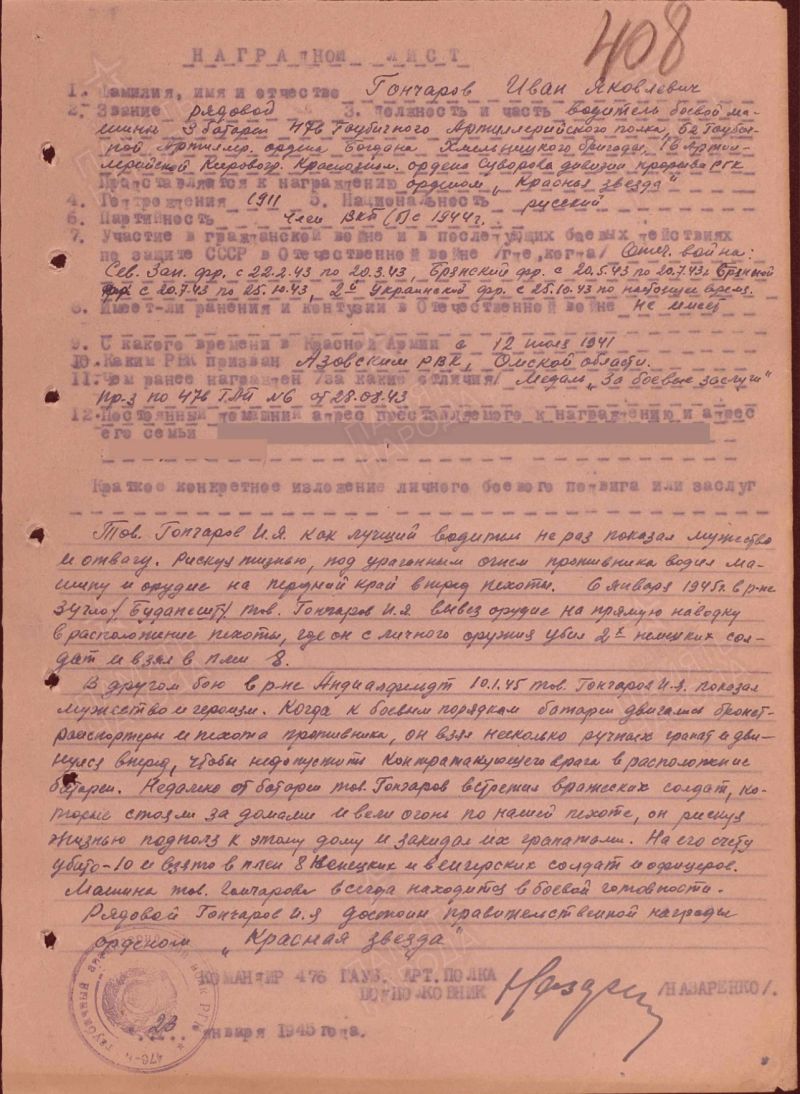 408
НАГРАДНОЙ ЛИСТ
1. Фамилия, имя и отчество Гончаров Иван Яковлевич
2. Звание рядовой 3. Должность и часть Водитель боевой ма-
шины 3 батареи 476 Гаубичного Артиллерийского полка, 62 Гаубич-
ной Артиллер. ордена Богдана Хмельницкого бригады, 16 Артил-
лерийской Кировогр. Краснознам. ордена Суворова дивизии прорыва РГК
Представляется к награждению орденом „Красная звезда"
4. Год рождения 1911 5. Национальность русский
6. Партийность Член ВКП(б) с 1944г.
7. Участие в гражданской войне и в последующих боевых действиях
по защите СССР в Отечественной войне /где, когда/ Отеч. война:
Сев. Зап. фр. с 22.2.43 по 20.3.43, Брянский фр. с 20.5.43 по 20.7.43г
фр. с 20.7.43 по 25.10.43, 2й Украинский фр. с 25.10.43 по настоящее время.
8. Имеет-ли ранения и контузии в Отечественной войне не имеет
9. С какого времени в Красной Армии с 12 1941
10. Каким РВК призван Азовским РВК, Омской области.
11. Чем ранее награжден /за какие отличия/ Медаль „За боевые заслуги"
Пр-з по 476 ГАП №6 от 28.08.43
12. Постоянный домашний адрес представляемого к награждению и адрес
его семьи
Краткое конкретное изложение личного боевого подвига или заслуг
Тов. Гончаров И.Я. как лучший водитель не раз показал мужество
и отвагу. Рискуя жизнью, под ураганным огнем противника водил ма-
шину и орудие на передний край вперед пехоты. 6 января 1945г. в р-не
Зугло /Будапешт/ тов. Гончаров И.Я. вывез орудие на прямую наводку
в расположение пехоты, где он с личного оружия убил 2х немецких сол-
дат и взял в плен 8.
В другом бою в р-не Андиалфельдт 10.1.45 тов. Гончаров И.Я. показал
мужество и героизм. Когда к боевым порядкам батареи двигались бронет-
ранспортеры и пехота противника, он взял несколько ручных гранат и дви-
нулся вперед, чтобы недопустить контратакующего врага в расположение
батареи. Недалеко от батареи тов. Гончаров встретил вражеских солдат, ко-
торые стояли за домами и вели огонь по нашей пехоте, он рискуя
жизнью подполз к этому дому и закидал их гранатами. На его счету
убито-10 и взято в плен 8 немецких и венгерских солдат и офицеров.
Машина тов. Гончарова всегда находится в боевой готовности.
Рядовой Гончаров И.Я достоин правительственной награды
орденом „Красная звезда"
КОМАНДИР 476 ГАУБ. АРТ. ПОЛКА
ПОДПОЛКОВНИК /НАЗАРЕНКО/.
23 января 1945 года.